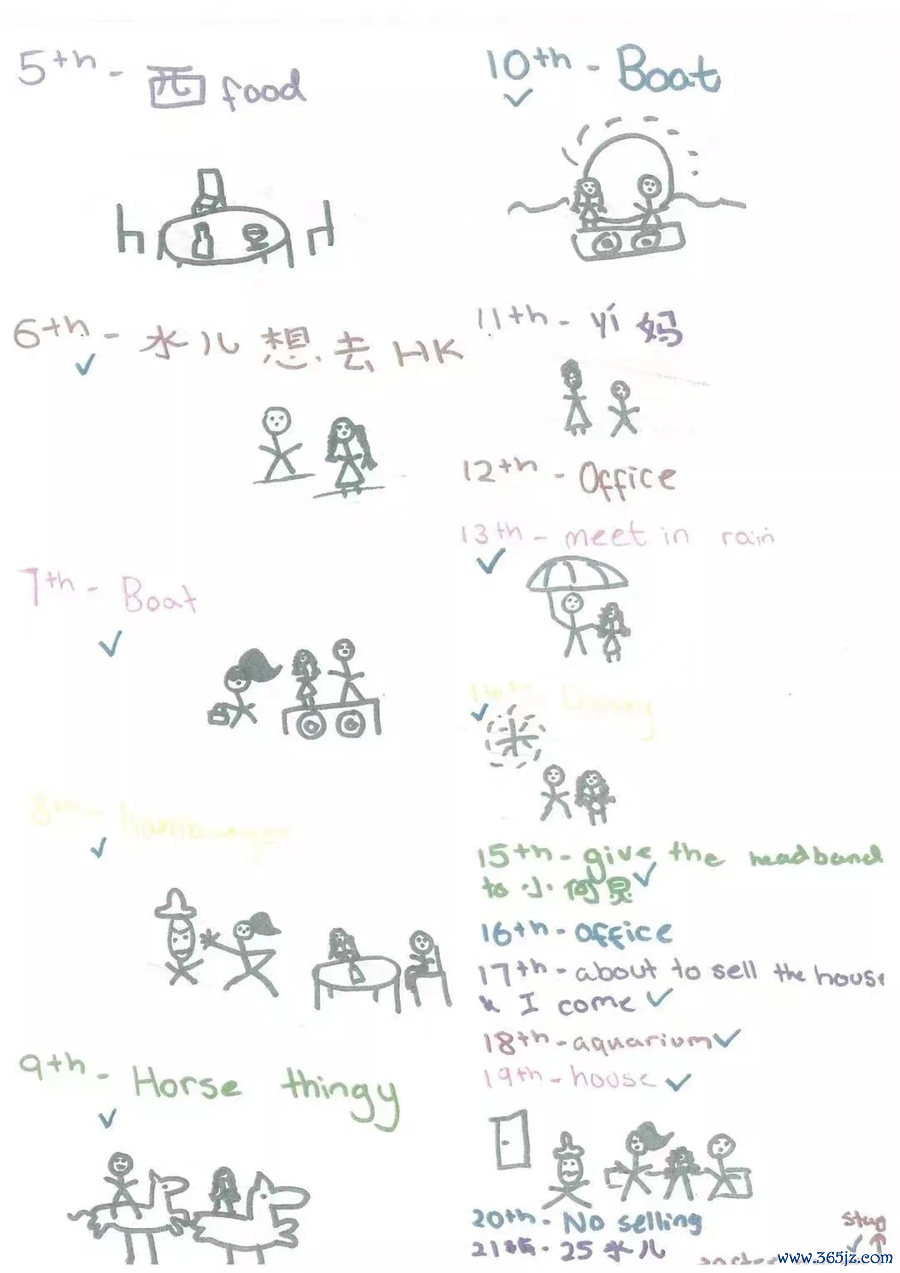 5th - 西 food
6th - 水儿 想 去 HK
7th - Boat
8th - hamburger
9th - Horse thingy
10th - Boat
11th - yí 妈
12th - Office
13th - meet in rain
14th - Disney
15th - give the headband
to 小何炅
16th - office
17th - about to sell the house
& I come
18th - aquarium
19th - house
20th - No selling
21 - 25 水儿
stay
www.365jz.com